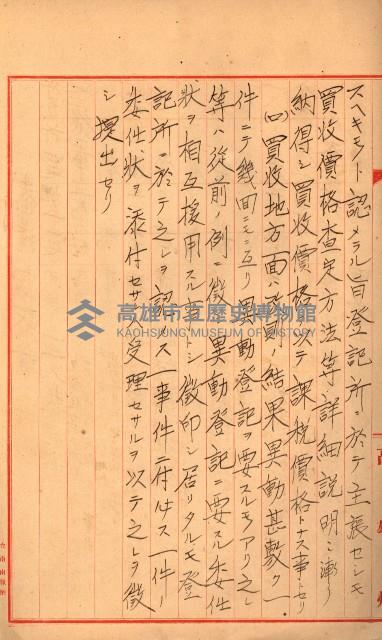 スヘキモノト認メラル旨登記所ニ於テ主張セシモ
買收價格査定方法等詳細説明シ漸ク
納得シ買收價格ヲ以テ課税價格トナス事トセリ
買收地方面ハ分割ノ結果異動甚敷ク一
件ニテ幾回ニモ亙リ異動登記ヲ要スルモノアリ之レ
等ハ從前ノ例ニ徴シ異動登記ニ要スル委任
狀ヲ相互援用スル事トシ徴印シ居リタルモ登
記所ニ於テ之レヲ認メス一事件ニ付必ス一件ノ
委任狀ヲ添付セサレハ受理セサルヲ以テ之レヲ徴
シ提出セリ
高雄市立歷史博物館
KAOHSIUNG MUSEUM OF HISTORY